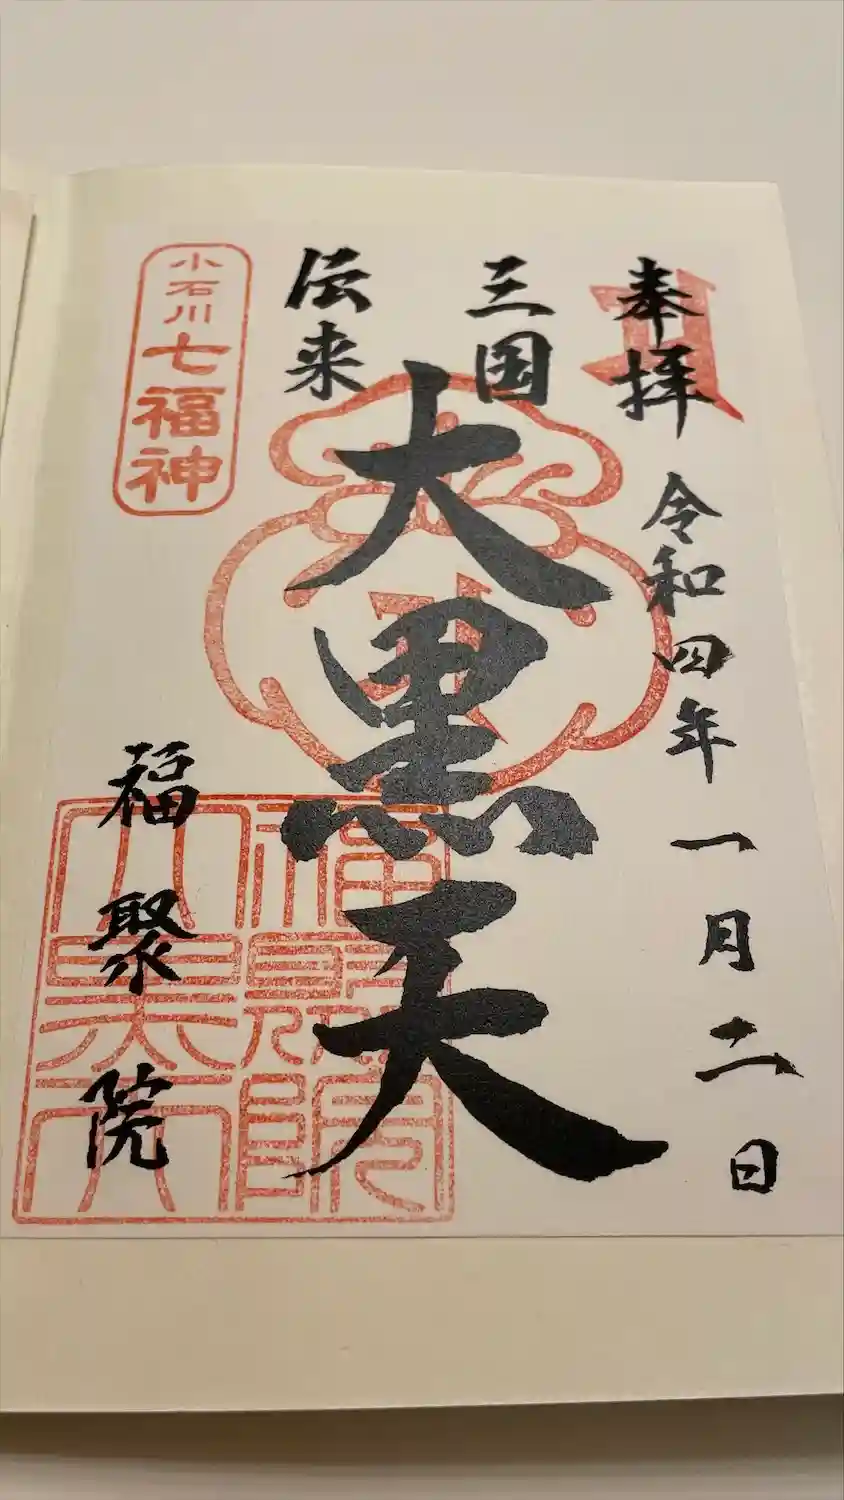 奉拝
令和四年一月二日
三国
伝来
大黒天
小石川七福神
福聚院